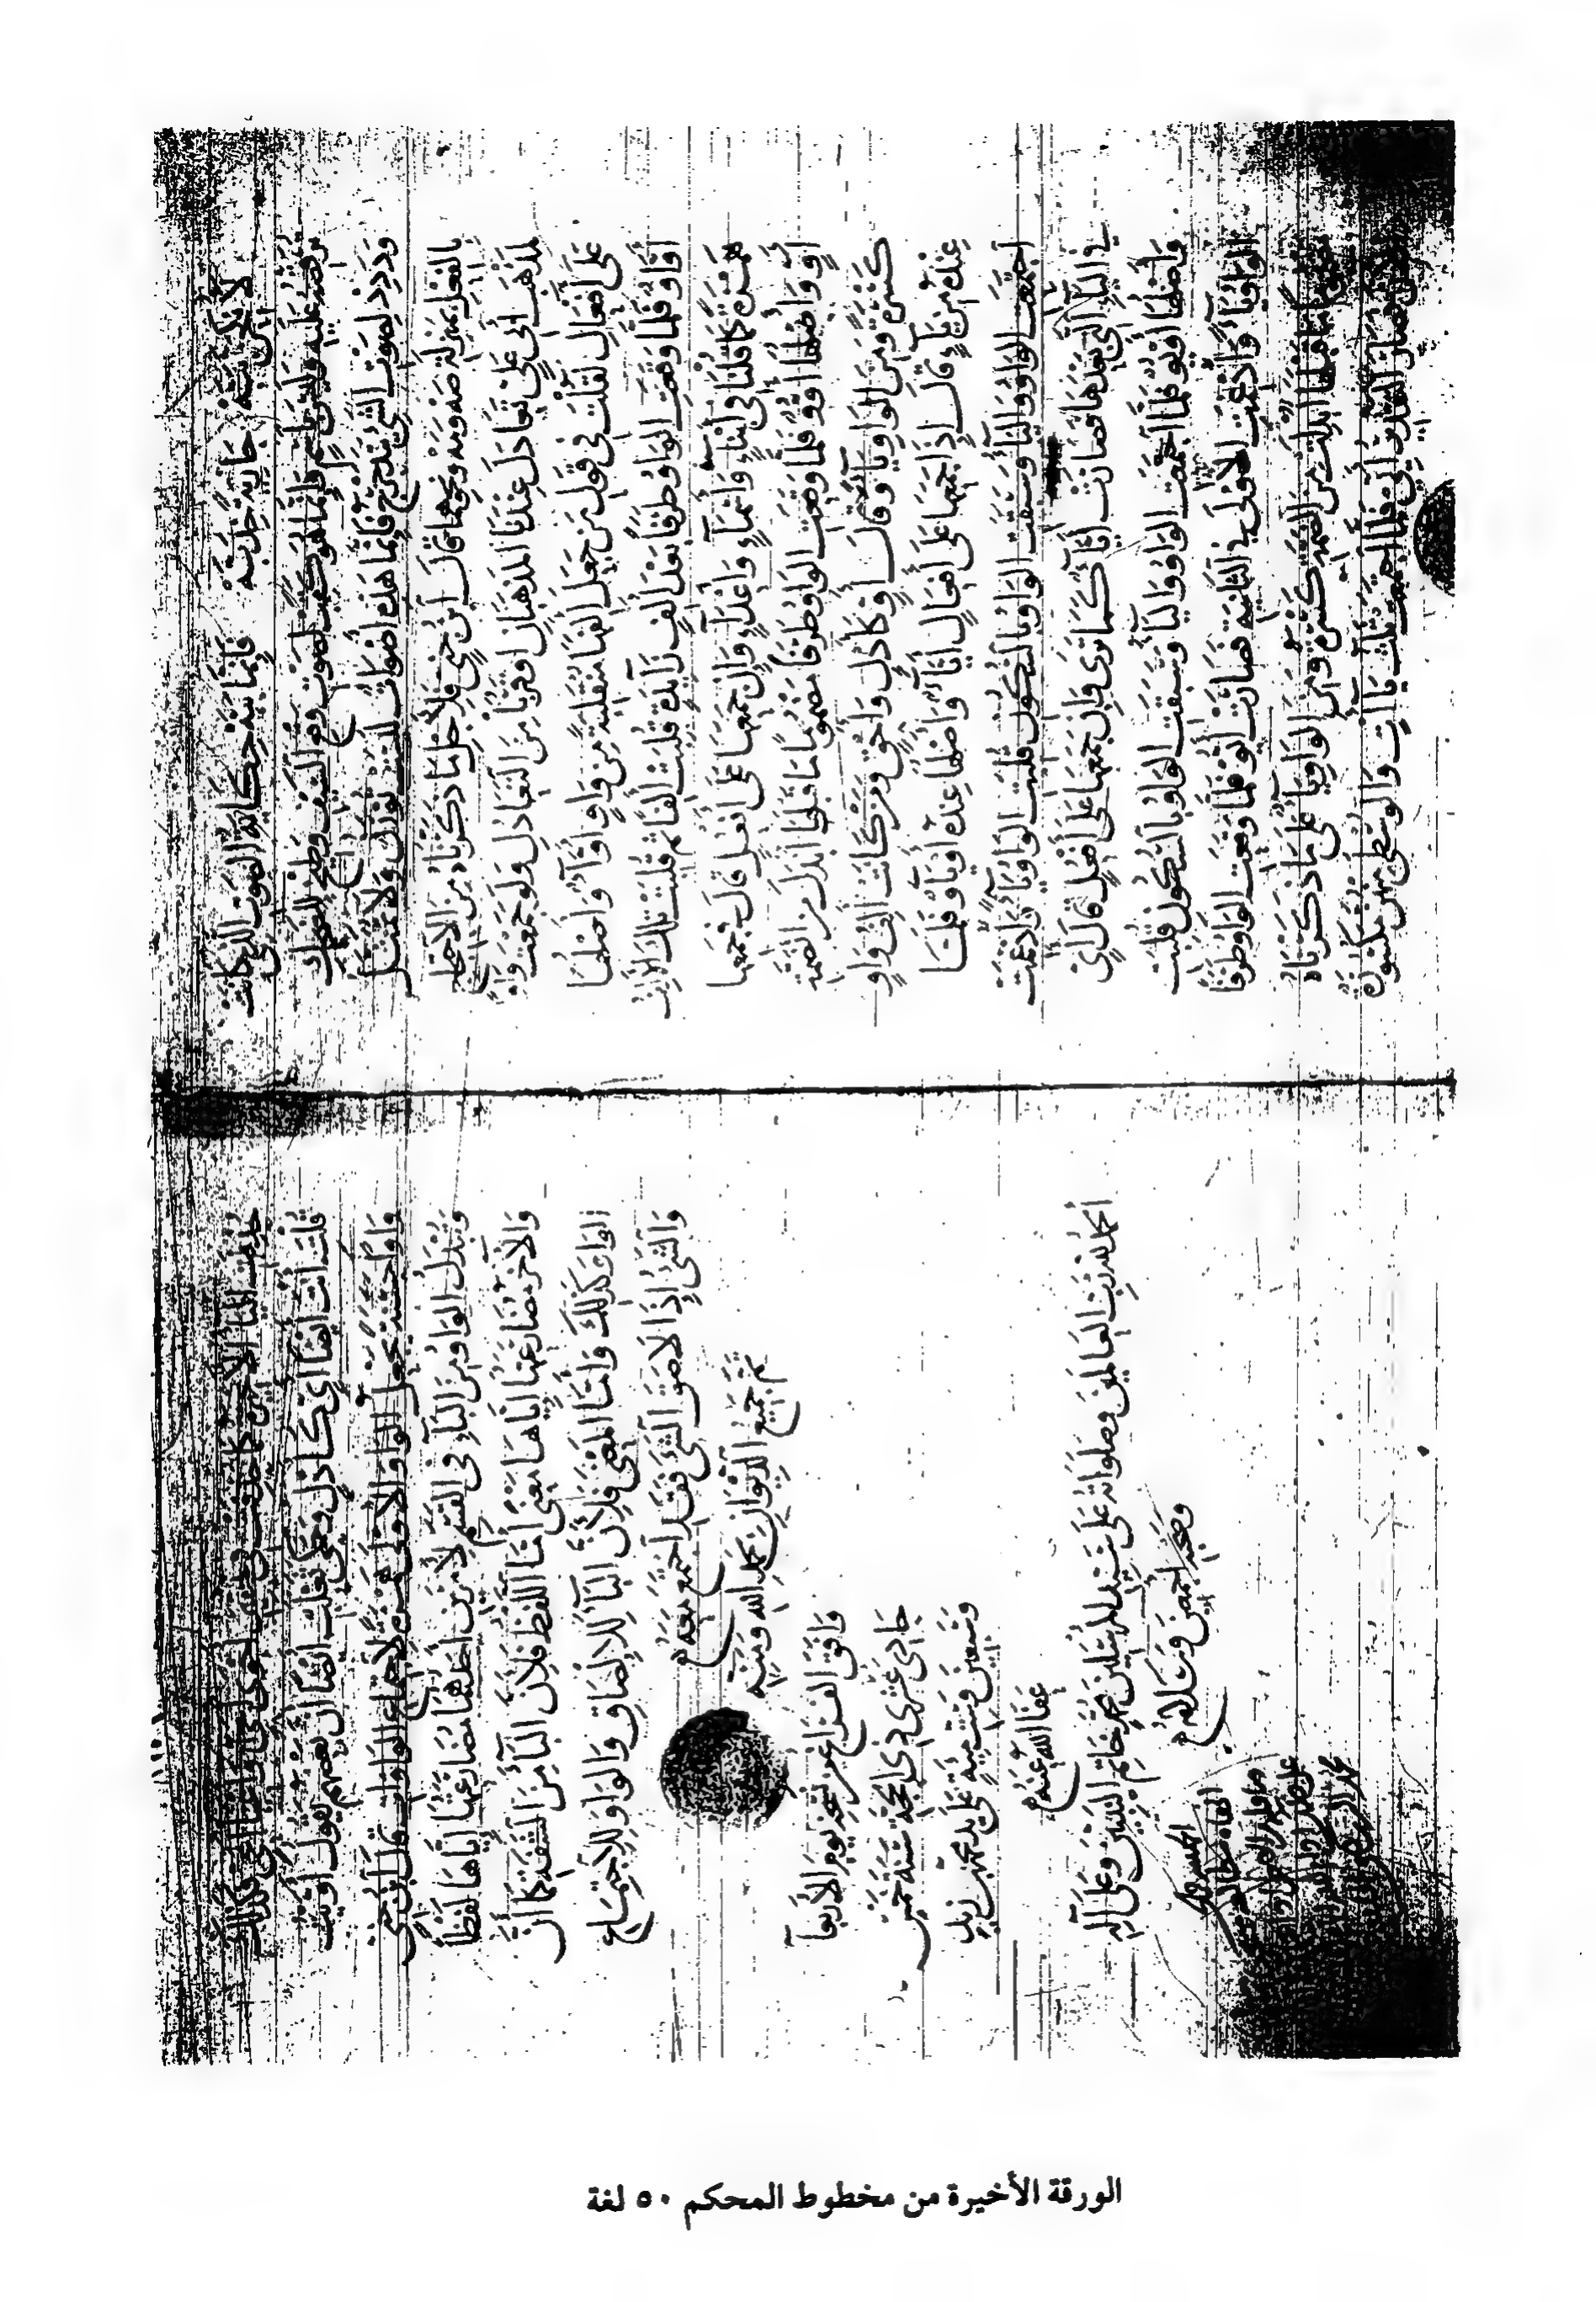 لأنكحن ببه جارية خدبه
فإنما ببه حكاية الصوت الذي كانت
ترقصه عليه وليس باسم وإنما هو كقب لصوت وقع السيف وطيخ للضحك
وددد لصوت الشيء يتدحرج فإنما هذه أصوات ليست توزن ولا تمثل
بالفعل بمنزلة صه ومه ونحوهما قال ابن جني فلأجل ما ذكرناه من الاحتجاج
لمذهب أبي علي تعادل عندنا المذهبان أو قربا من التعادل ولو جمعت واوا
على أفعال لقلت في قول من جعل ألفها منقلبة من واو أواء وأصلها
أواو فلما وقعت الواو طرفا بعد ألف زائدة قلبت ألفا ثم قلبت تلك الألف
همزة كما قلنا في أبناء وأسماء وأعداء وإن جمعها على أفعل قال في جمعها
أو وأصلها أووو فلما وقعت الواو طرفا مضموما ما قبلها أبدل من الضمة
كسرة ومن الواو ياء وقال أو كأدل وأحق ومن كانت ألف واو
عنده من ياء قال إذا جمعها على أفعال أياء وأصلها عنده أوياء فلما
اجتمعت الواو والياء وسبقت الواو بالسكون قلبت الواو ياء وأدغمت
في الياء التي بعدها فصارت أياء كما ترى وإن جمعها على أفعل قال أي
وأصلها أويو فلما اجتمعت الواو والياء وسبقت الواو بالسكون قلبت
الواو ياء وأدغمت الأولى في الثانية فصارت أيو فلما وقعت الواو طرفا
مضموما ما قبلها أبدلت من الضمة كسرة ومن الواو ياء على ما ذكرناه
ثلاث ياءات والوسطى منهن مكسورة
حذفت الياء الأخيرة كما حذفت في تحقير أحوى أحي
قلت أنت أيضا أي كأدل وحكى ثعلب أيضا أن بعضهم يقول أويت
واوا حسنة يجعل الواو الأولى همزة لاجتماع الواوات قال ابن جني
وتبدل الواو من الباء في القسم لأمرين أحدهما مضارعتها إياها لفظا
والآخر مضارعتها إياها معنى أما اللفظ فلأن الباء من الشفة كما أن
الواو كذلك وأما المعنى فلأن الباء للإلصاق والواو للاجتماع
والشيء إذا لاصق الشيء فقد اجتمع معه
تم جميع الديوان بحمد الله ومنه
وافق الفراغ من نسخه يوم الأربعاء
حادي عشري ذي الحجة سنة خمس
وسبعين وستمئة على يد محمد بن زيد
عفا الله عنهم
الحمد لله رب العالمين وصلواته على سيد المرسلين محمد خاتم النبيين وعلى آله
وصحبه أجمعين وسلامه
الورقة الأخيرة من مخطوط المحكم ٥٠ لغة